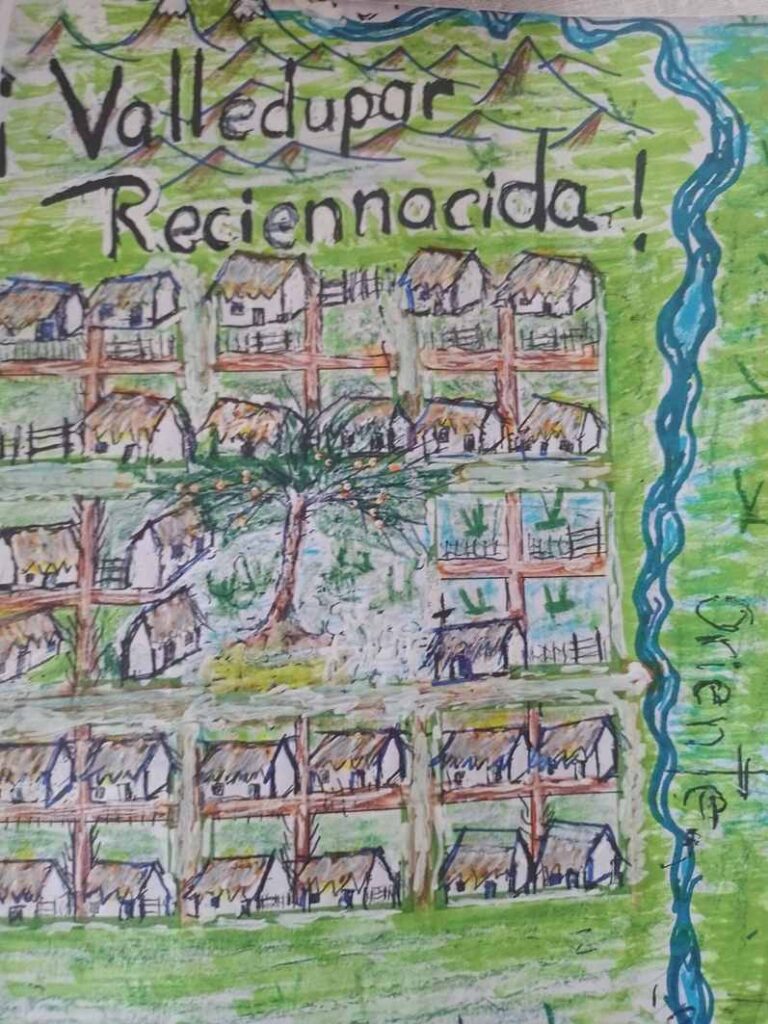 ¡Valledupar
Reciennacida!
Oriente